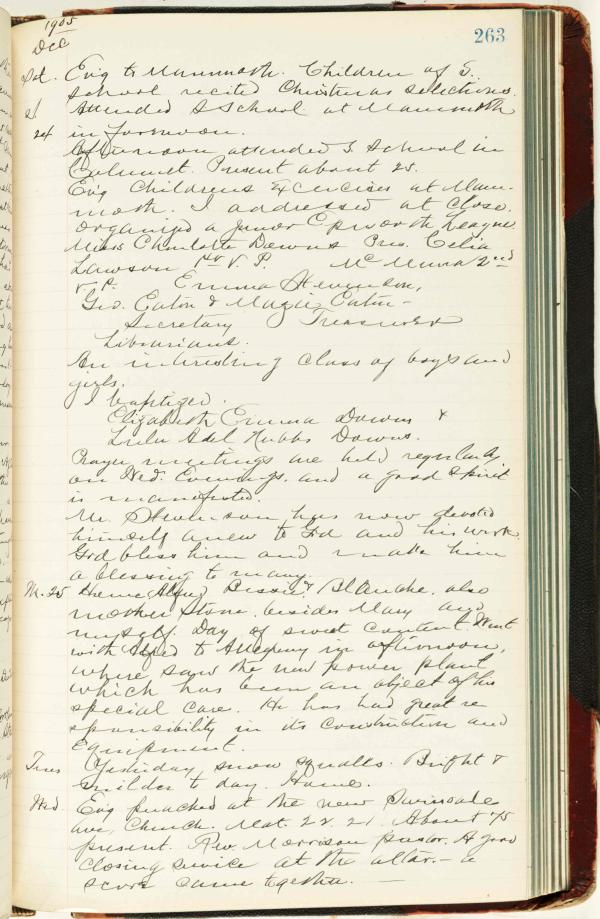 1905
263
Dec
Sat. Evig to Mammoth. Children of S.
School recited Christmas selections.
S Attended S School at Mammoth
24 in forenoon.
Afternoon attended S School in
Calumet. Present about 25.
Evig Childrens Exercises at Mam-
moth. I addressed at close.
Organized a Junior Epworth League
Miss Charlotte Downs Pres. Celia
Lawson 1st V. P. McMunn 2nd
V. P. Emma Stevenson,
Geo. Eaton & Magie Eaton -
Secretary Treasurer
Librarians.
An interesting class of boys and
girls.
I baptized.
Elizabeth Emma Downs &
Lulu Adel Hubbs Downs.
Prayer meetings are held regularly
on Wed. Evenings, and a good spirit
is manifested.
Mr. Stevenson has now devoted
himself anew to God and his work.
God bless him and make him
a blessing to many.
M. 25 Alfred Bessie & Blanche, also
mother Stone, besides Mary and
myself. Day of sweet content. Went
with Alfred to Allegheny in afternoon,
where saw the new power plant
which has been an object of his
special care. He has had great re
sponsibility in its construction and
Equipment.
Tues Yesterday snow squalls. Bright &
milder to day. Home.
Wed Evig preached at the new
Ave, Church. Mat. 22, 21. About 75
present. Rev. Morrison pastor. A good
closing service at the altar. - a
score came together. -